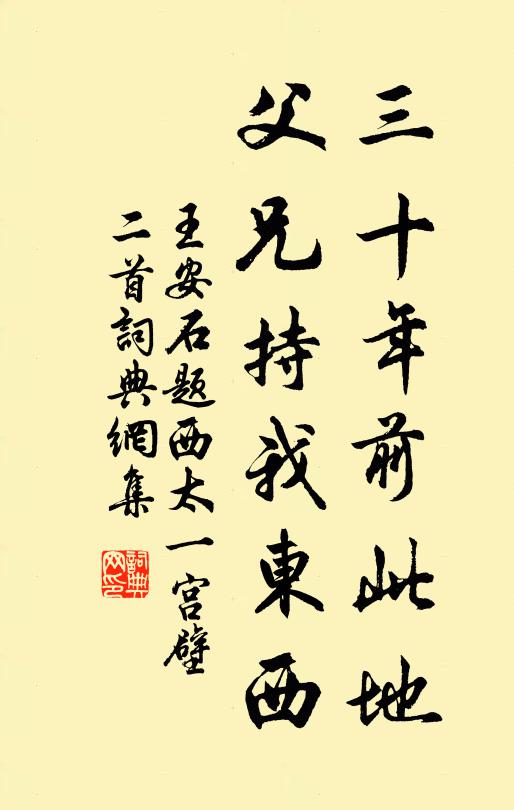 三十年前此地
父兄持我東西
王安石题西太一宫壁
二首詞典網集
詞典网印